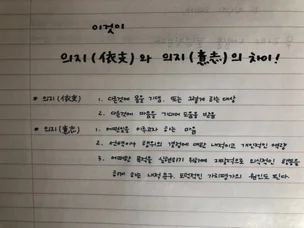 이것이
의지(依支)와 의지(意志)의 차이!
* 의지(依支) 1. 다른것에 몸을 기댐. 또는 그렇게 하는 대상
2. 다른것에 마음을 기대어 도움을 받음
* 의지(意志) 1. 어떠한일을 이루고자 하는 마음
2. 선택이나 행위의 결정에 대한 내적이고 개인적인 역량
3. 어떠한 목적을 실현하기 위하여 자발적으로 의식적인 행동을
하게 하는 내적 욕구. 도덕적인 가치평가의 원인도 된다.